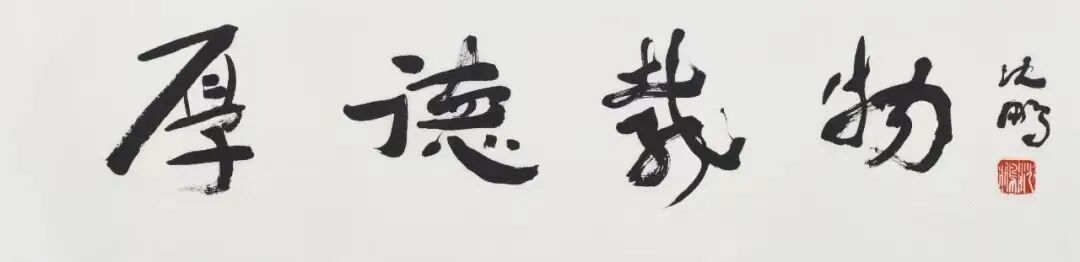 厚德载物
沈鹏